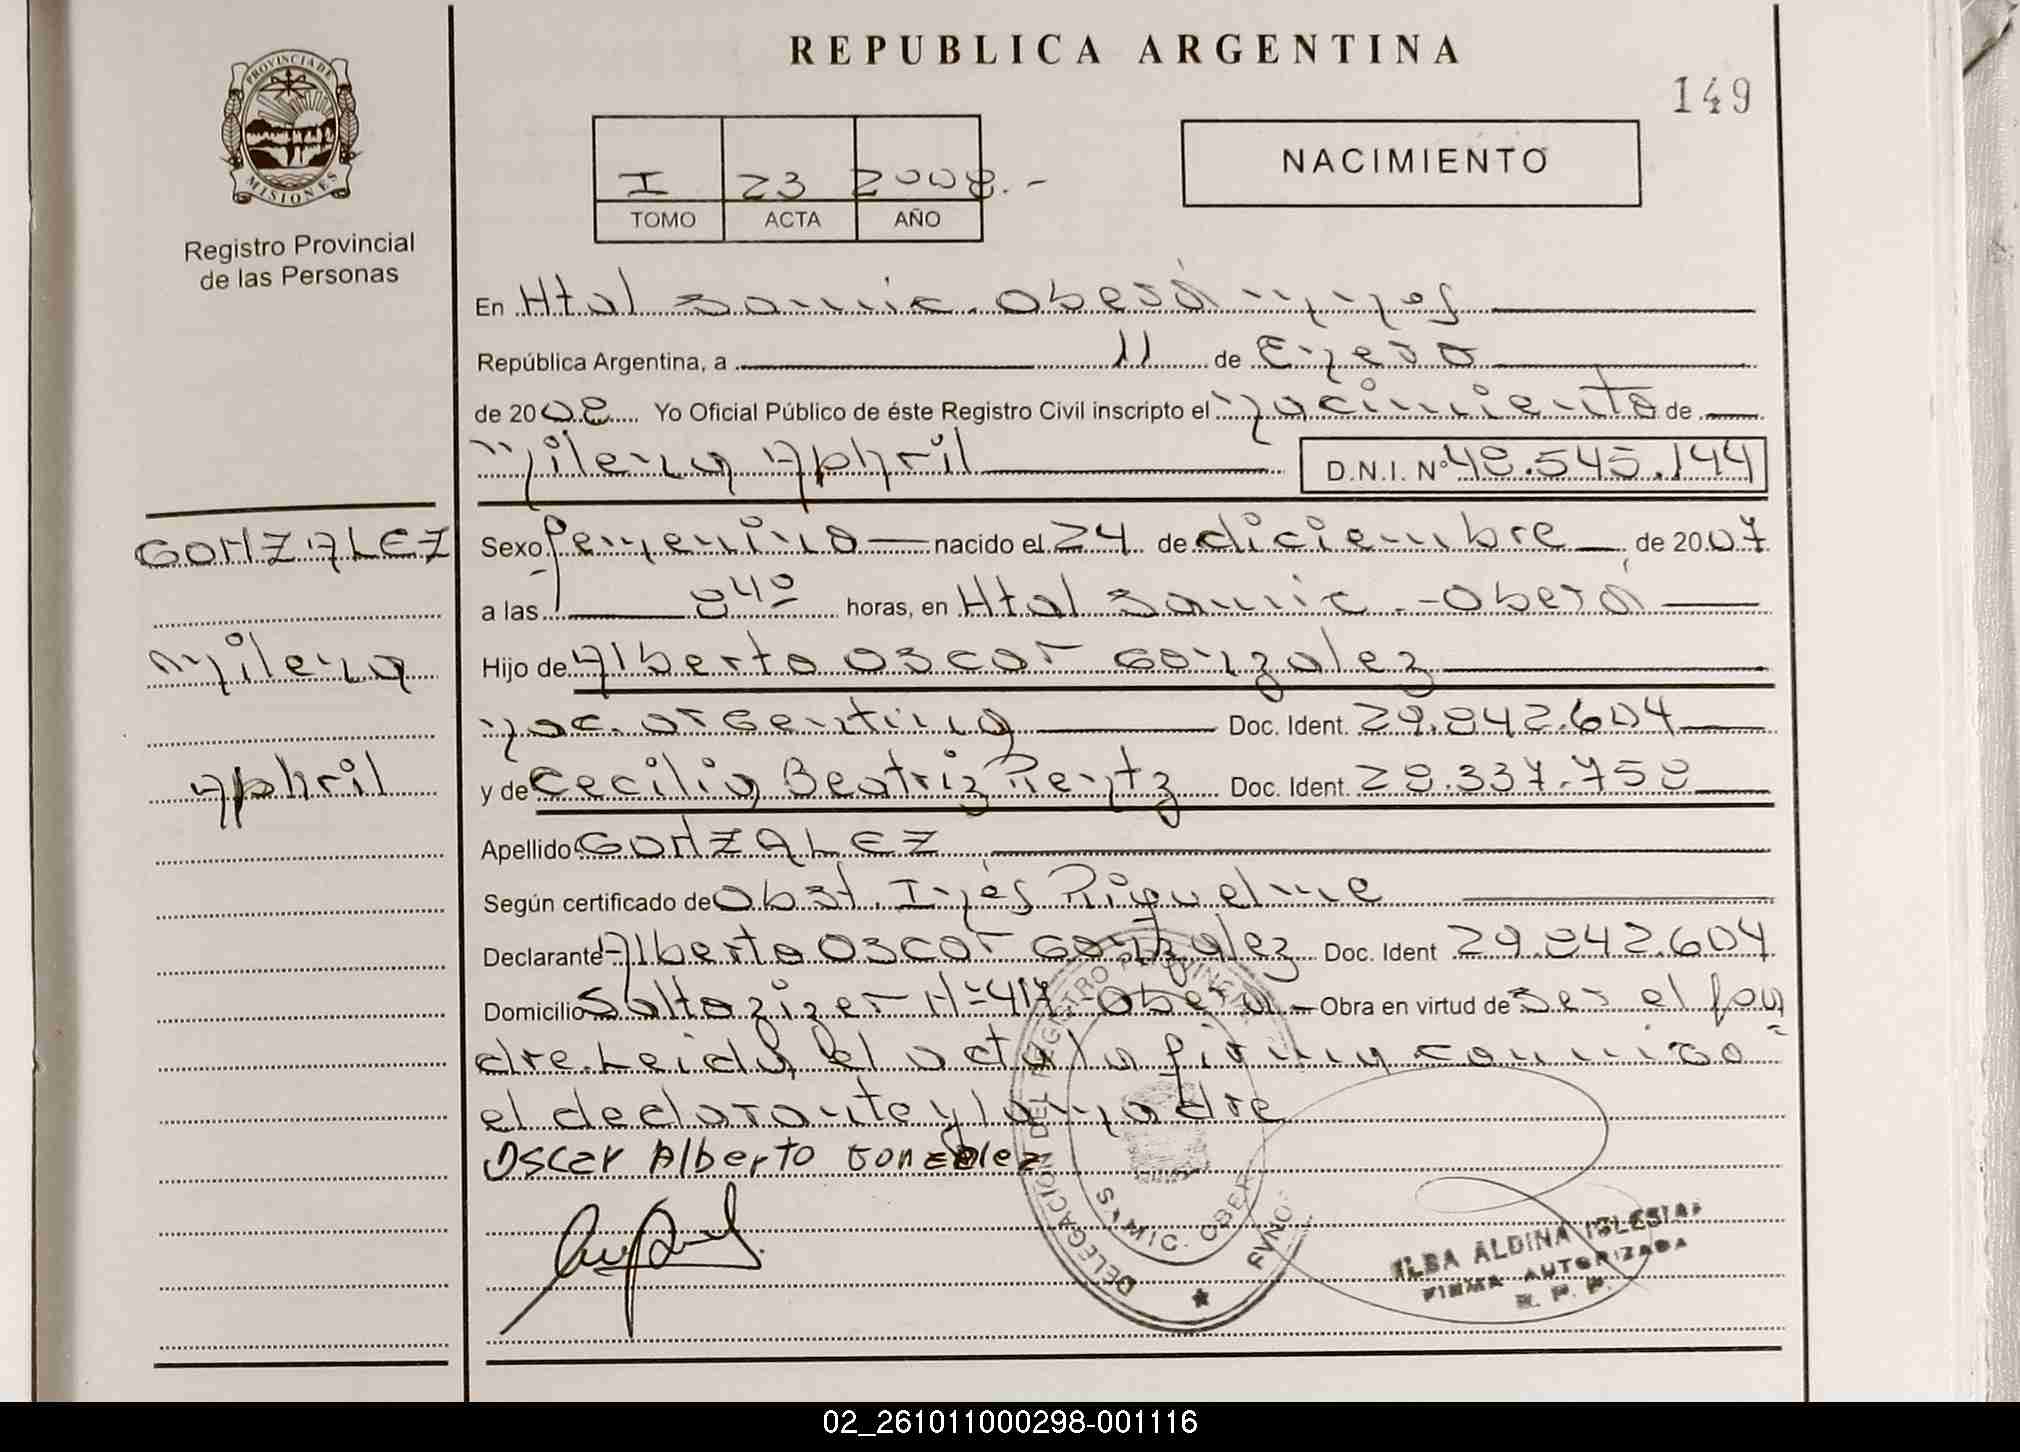 REPUBLICA ARGENTINA
149
PROVINCIA DE
MISIONES
Registro Provincial
de las Personas
I 23 2008.-
TOMO ACTA AÑO
NACIMIENTO
En Htal Samic. Oberá Misiones
República Argentina, a 11 de Enero
de 2008 Yo Oficial Público de éste Registro Civil inscripto el nacimiento de
Milena Aphril D.N.I. Nº 48.545.144
GONZALEZ
Milena
Aphril
Sexo femenino nacido el 24 de diciembre de 2007
a las 8 40 horas, en Htal Samic.- Oberá
Hijo de Alberto Oscar Gonzalez
nac. argentina Doc. Ident. 29.842.604
y de Cecilia Beatriz Rentz Doc. Ident. 28.337.758
Apellido GONZALEZ
Según certificado de Obst. Inés Riquelme
Declarante Alberto Oscar Gonzalez Doc. Ident 29.842.604
Domicilio Nº 417 - Oberá - Obra en virtud de ser el pa
dre. Leida el acta la firma conmigo
el declarante y la madre
Oscar Alberto Gonzalez
DELEGACION DEL REGISTRO PROVINCIAL
SAMIC. OBERA
ILDA ALDINA IGLESIAS
FIRMA AUTORIZADA
R. P. P.
02_261011000298-001116